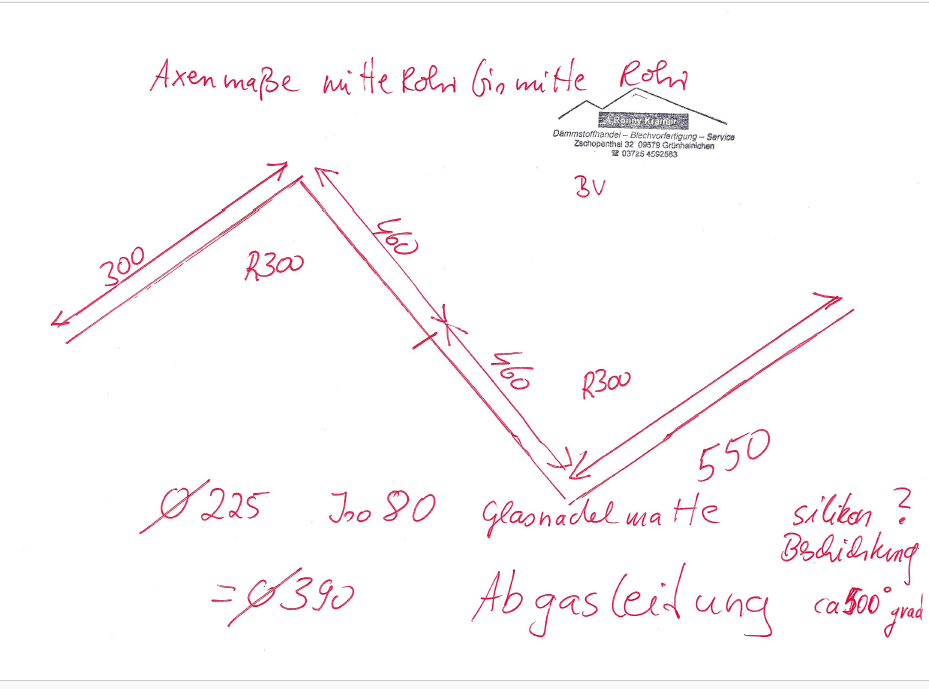 Axenmaße mitte Rohr bis mitte Rohr
Ronny Krämer
Dämmstoffhandel – Blechvorfertigung – Service
Zschopenthal 32 09579 Grünhainichen
☎ 03725 4592583
BV
300
R300
460
460
R300
550
Ø 225 Iso 80 Glasnadelmatte silikon ?
Bschichtung
= Ø 390 Abgasleitung ca 500° grad